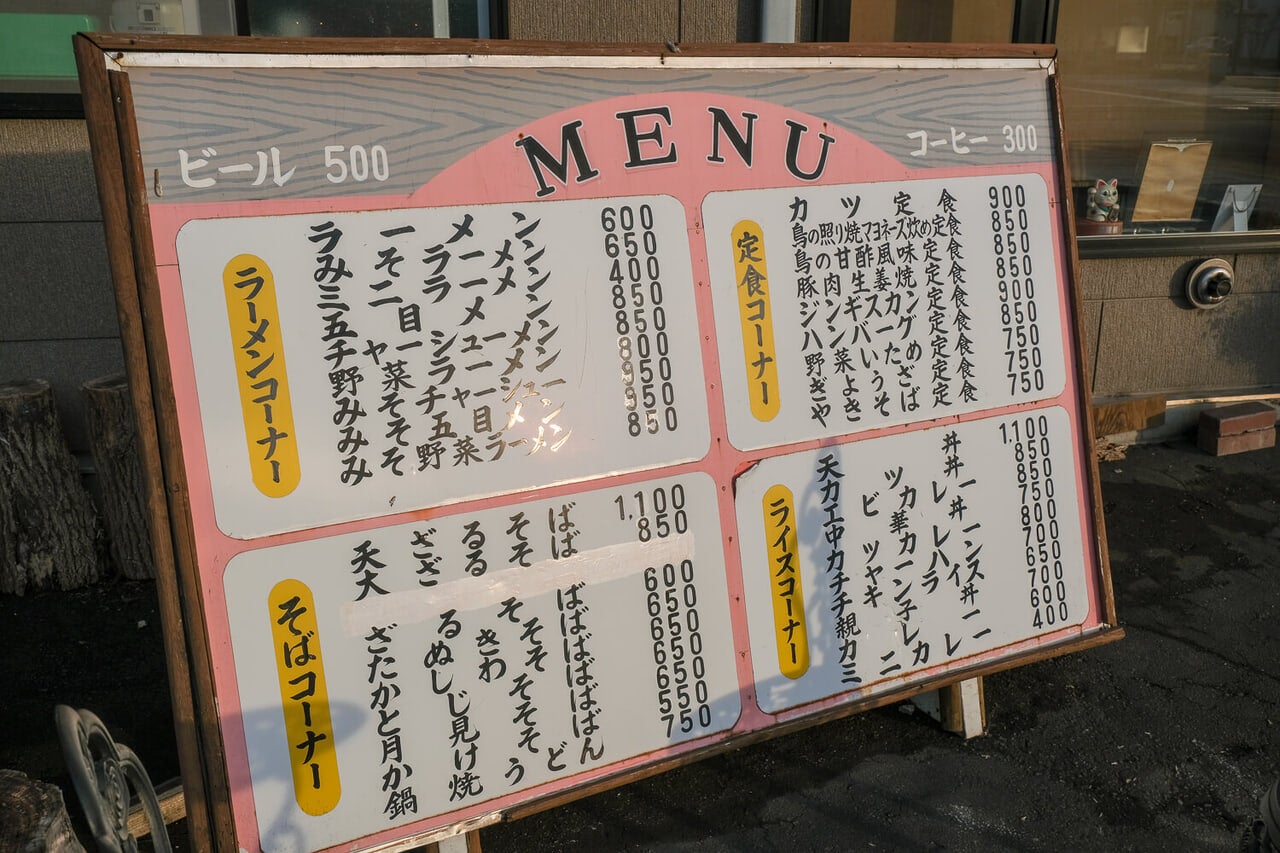 MENU
ビール 500
コーヒー 300
ラーメンコーナー
ラーメン 600
みそラーメン 650
ミニラーメン 400
五目ラーメン 850
チャーシューメン 850
野菜ラーメン 800
みそチャーシューメン 950
みそ五目ラーメン 950
みそ野菜ラーメン 850
定食コーナー
カツ定食 900
鳥の照り焼マヨネーズ炊め定食 850
鳥の甘酢風味定食 850
豚肉生姜焼定食 850
ジンギスカン定食 900
ハンバーグ定食 850
野菜いため定食 750
ぎょうざ定食 750
やきそば定食 750
そばコーナー
天ざるそば 1,100
大ざるそば 850
ざるそば 600
たぬきそば 650
かしわそば 650
とじそば 650
月見そば 650
かけそば 550
鍋焼うどん 750
ライスコーナー
天丼 1,100
カツ丼 850
エビカレー 850
中華丼 750
カツカレー 800
チャーハン 700
チキンライス 650
親子丼 700
カレー 600
ミニカレー 400